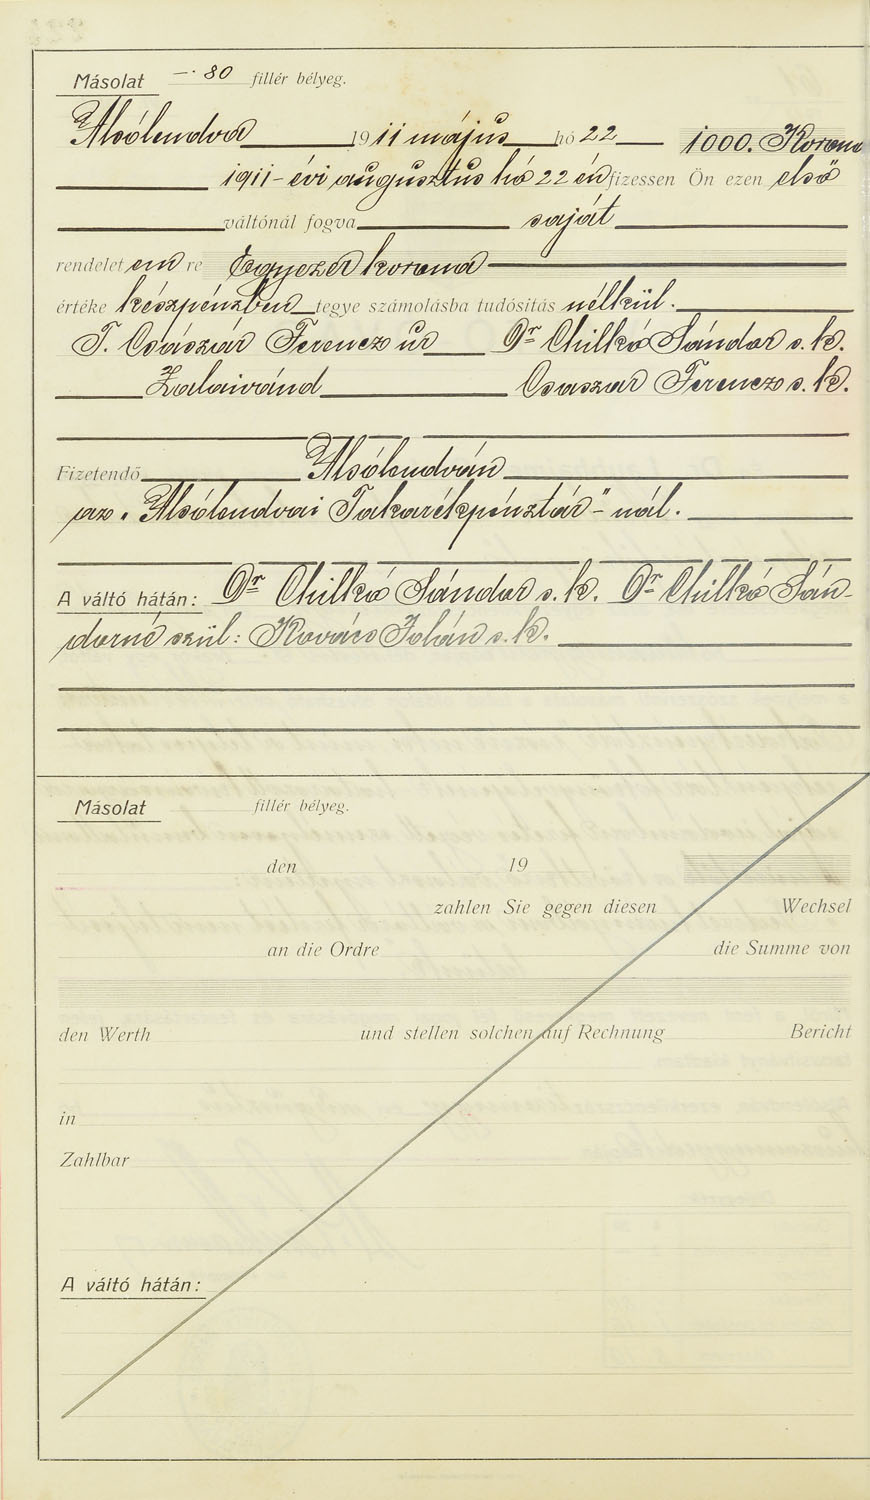 Másolat —·80 fillér bélyeg.
Alsólendva 1911 május hó 22 1000. Korona
1911 - évi augusztus hó 22 én fizessen Ön ezen első
váltónál fogva saját
rendeletem re Egyezer korona
értéke készpénzben tegye számolásba tudósítás nélkül.
T. Császár Ferencz úr Dr Chilkó Sándor s. k.
Zalaivánd Csaszar Ferencz s. k.
Fizetendő Alsólendván
az „Alsólendvai Takarékpénztár"-nál.
A váltó hátán: Dr Chilkó Sándor s. k. Dr Chilkó Sán-
dorné szül: Kovács Jolán s. k.
Másolat fillér bélyeg.
den 19
zahlen Sie gegen diesen Wechsel
an die Ordre die Summe von
den Werth und stellen solchen auf Rechnung Bericht
in
Zahlbar
A váltó hátán: